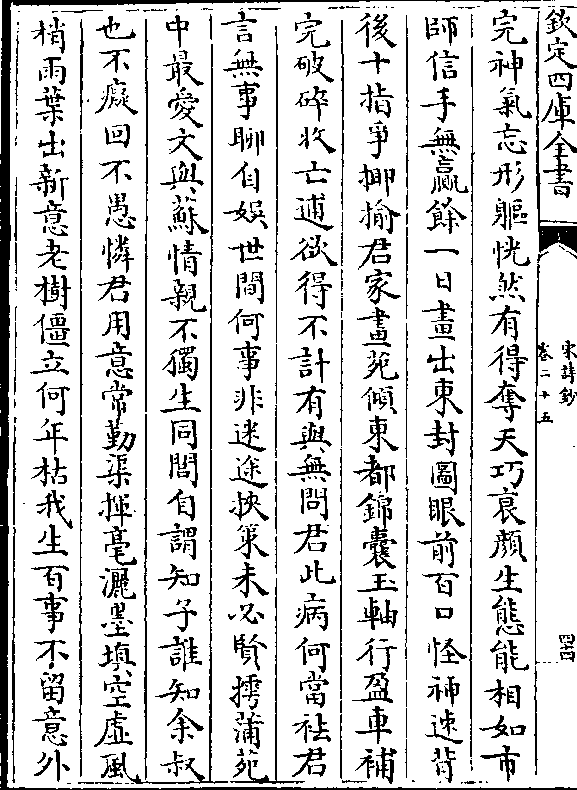 欽定四庫全書
宋詩鈔
卷二十五
四
完神氣忘形軀恍然有得奪天巧衰顔生態能相如市
師信手無贏餘一日畫出東封圖眼前百口怪神速背
後十指爭揶揄君家畫苑傾東都錦囊玉軸行盈車補
完破碎收亡逋欲得不計有與無問君此病何當祛君
言無事聊自娛世間何事非迷途挾策未必賢摴蒲苑
中最愛文與蘇情親不獨生同閭自謂知子誰知余叔
也不癡回不愚憐君用意常勤渠揮毫灑墨填空虛風
梢雨葉出新意老樹僵立何年枯我生百事不留意外